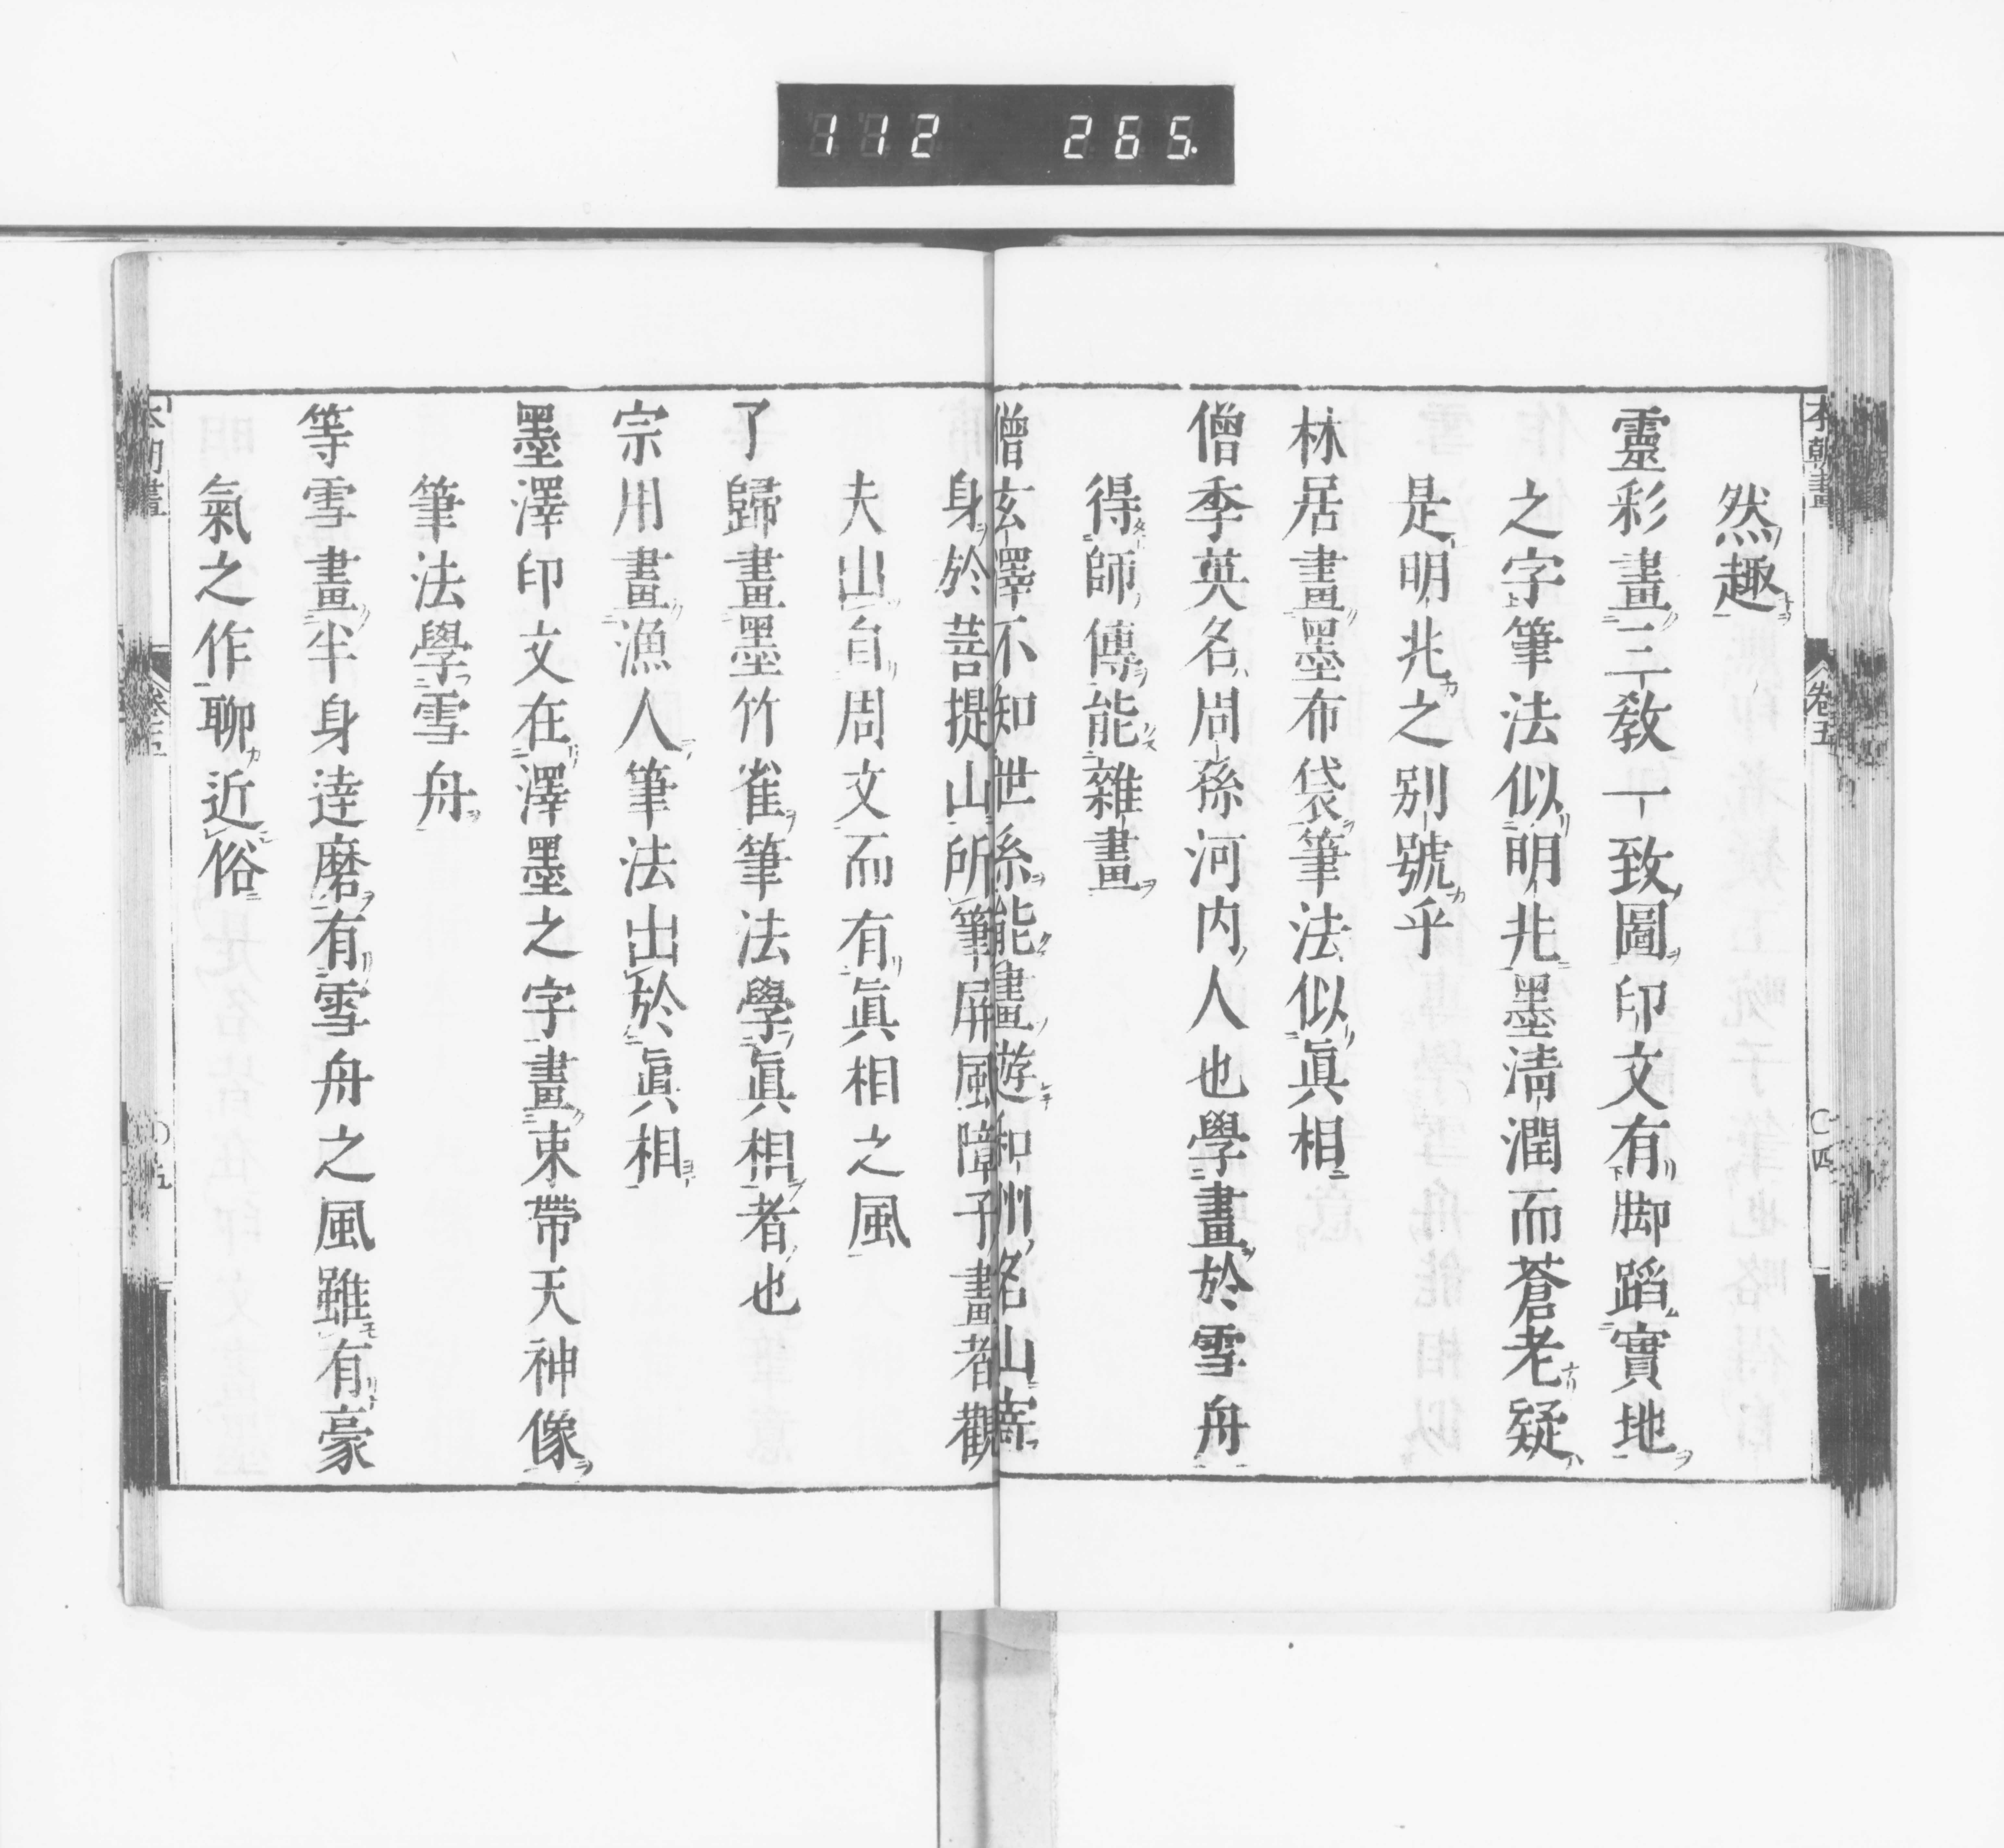 112 265.
本朝畫
卷五
四
然趣
靈彩畫三教一致圖印文有脚蹈實地
之字筆法似明兆墨淸潤而蒼老疑
是明兆之别號乎
林居畫墨布袋筆法似眞相
僧季英名周孫河内人也學畫於雪舟
得師傳能雜畫
僧玄澤不知世系能畫遊和州名山寄
身於菩提山所筆屏風障子畫者觀
夫山自周文而有眞相之風
了歸畫墨竹雀筆法學眞相者也
宗用畫漁人筆法出於眞相
墨澤印文在澤墨之字畫束帶天神像
筆法學雪舟
等雪畫半身達磨有雪舟之風雖有豪
氣之作聊近俗
本朝畫
卷五
五